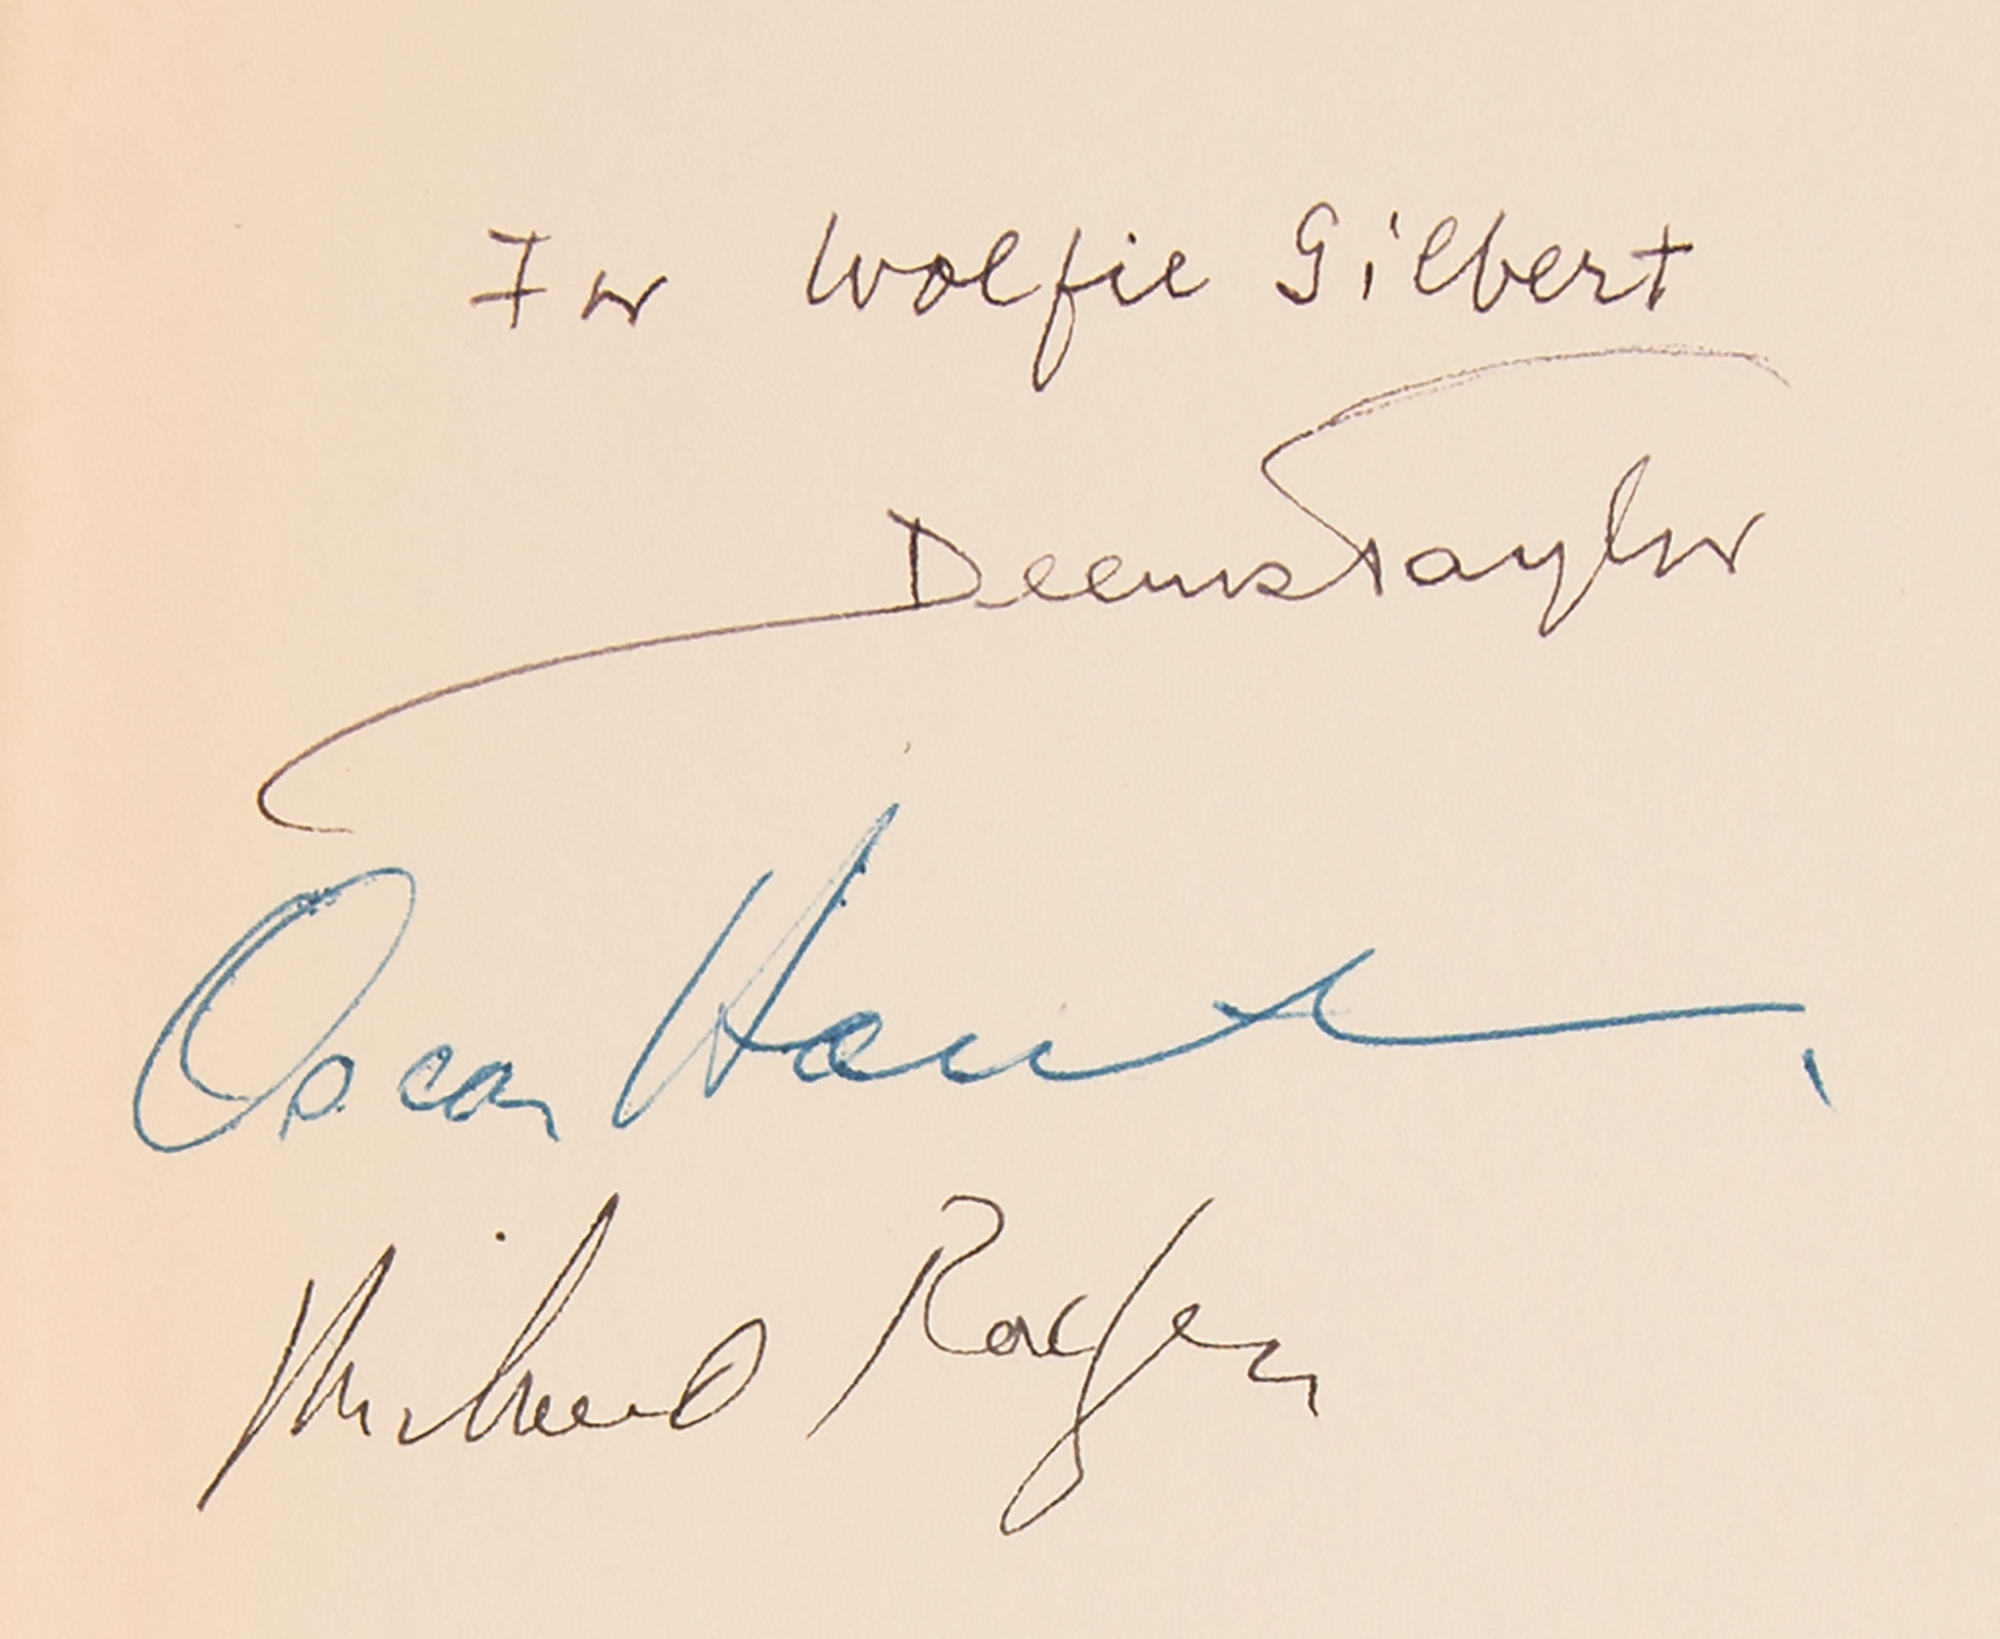 For Wolfie Gilbert
Deems Taylor
Oscar Ham
Richard Rodgers